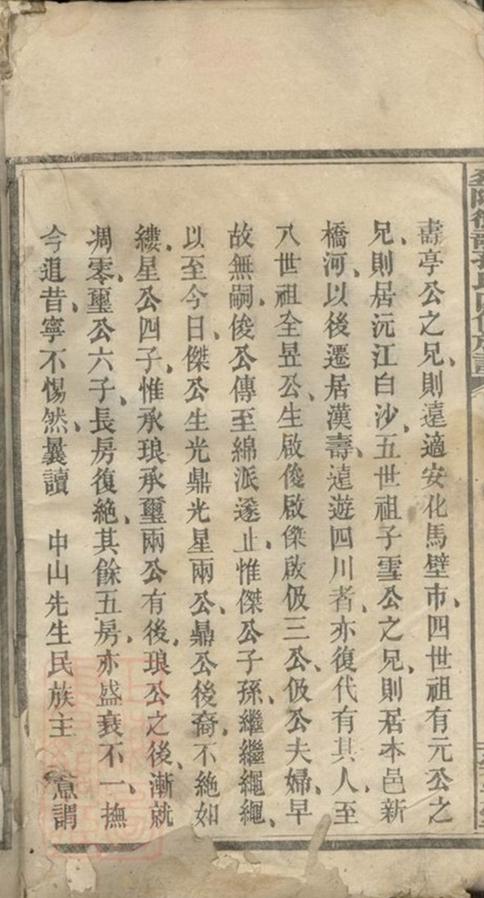 壽亭公之兄則遠適安化馬壁市四世祖有元公之
兄則居沅江白沙五世祖子雪公之兄則居本邑新
橋河以後遷居漢壽遠遊四川者亦復代有其人至
八世祖全昱公生啟俊啟傑啟伋三公伋公夫婦早
故無嗣俊公傳至綿派遂止惟傑公子孫繼繼繩繩
以至今日傑公生光鼎光星兩公鼎公後裔不絶如
縷星公四子惟承琅承璽兩公有後琅公之後漸就
凋零璽公六子長房復絶其餘五房亦盛衰不一撫
今追昔寧不惕然曩讀 中山先生民族主 意謂